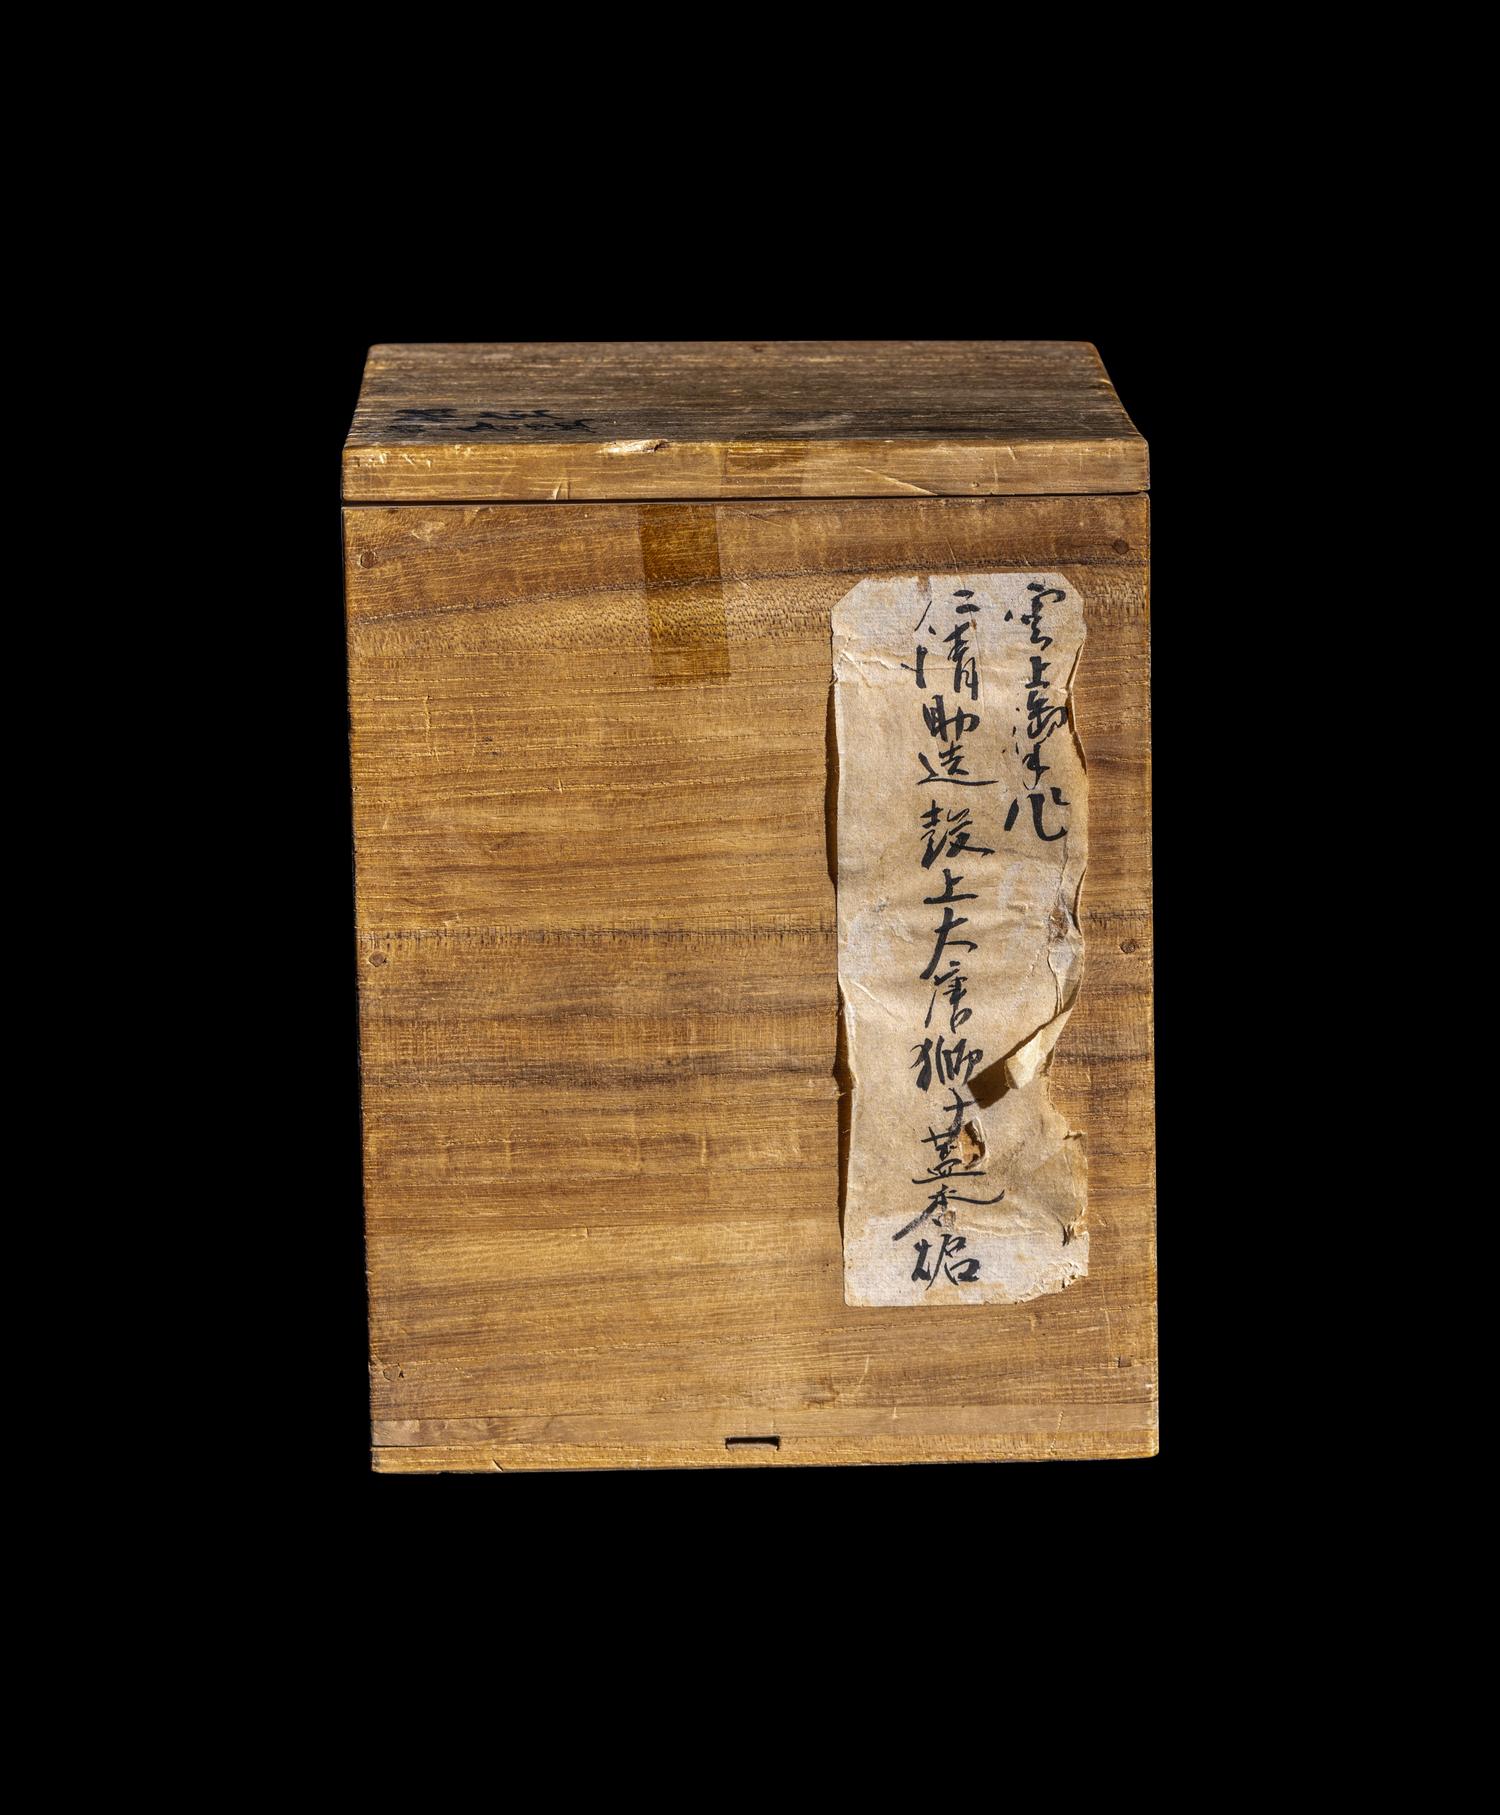 雲上御手作
仁清助造 鼓上大唐獅子蓋香炉